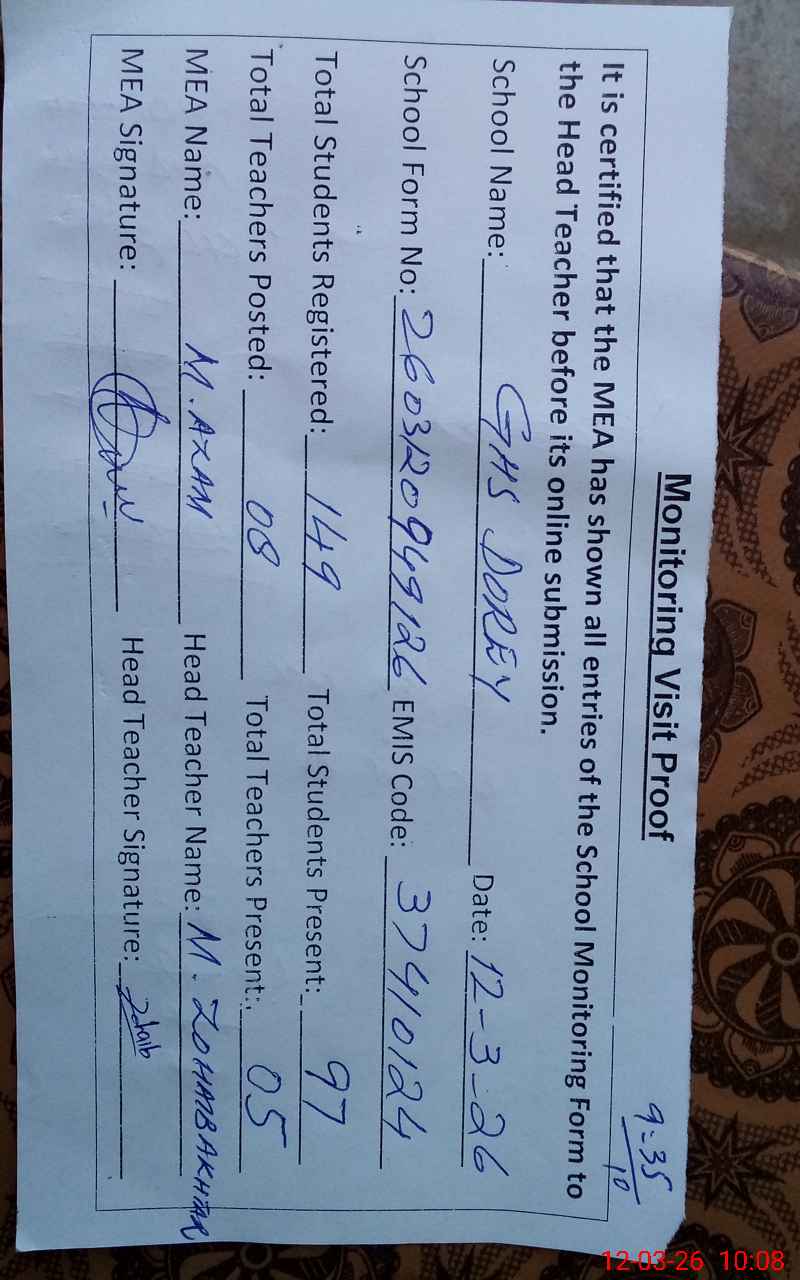 Monitoring Visit Proof
9-35
10
It is certified that the MEA has shown all entries of the School Monitoring Form to
the Head Teacher before its online submission.
School Name: GHS DOREY Date: 12-3-26
School Form No: 2603120949126 EMIS Code: 37410124
Total Students Registered: 149 Total Students Present: 97
Total Teachers Posted: 08 Total Teachers Present: 05
MEA Name: M. AZAM Head Teacher Name: M. ZOHAIBAKHTAR
MEA Signature: Head Teacher Signature: Zohaib
12-03-26 10:08